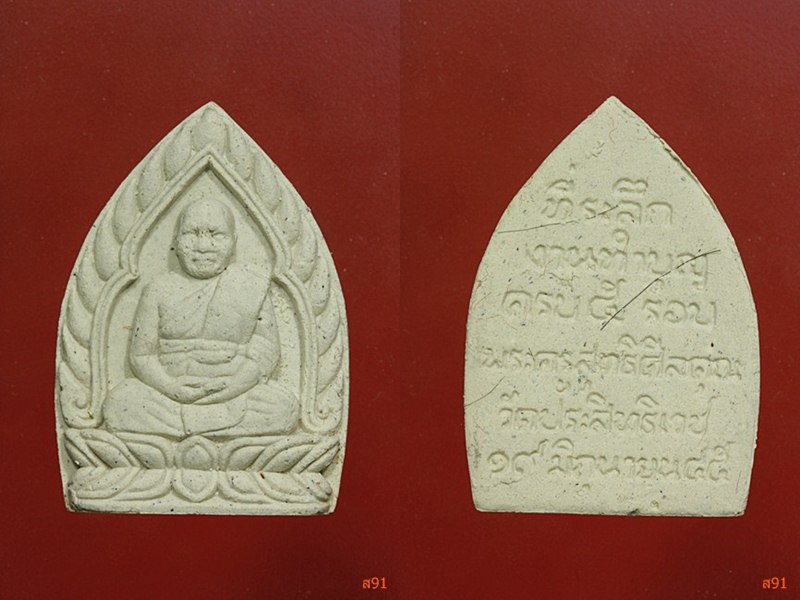 ที่ระลึก
งานทำบุญ
ครบ ๕ รอบ
พระครูสุทธิศีลคุณ
วัดประสิทธิเวช
๑๙ มิถุนายน ๔๕
ส91
ส91